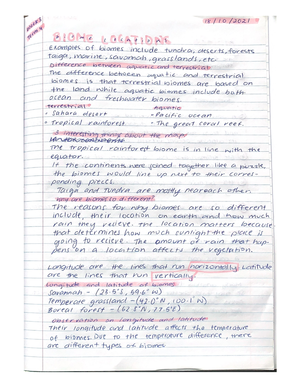 18/10/2021
BIOME LOCATIONS
Examples of biomes include tundra, deserts, forests
Taiga, marine, savannah, grasslands, etc
Difference between aquatic and terrestrial
The difference between aquatic and terrestrial
biomes is that terrestrial biomes are based on
the land while aquatic biomes include both
ocean and freshwater biomes.
terrestrial aquatic
• Sahara desert • Pacific ocean
• Tropical rainforest • The great coral reef
3 interesting things about the major
The tropical rainforest biome is in line with the
equator.
If the continents were joined together like a puzzle,
the biomes would line up next to their corres-
ponding pieces.
Taiga and tundra are mostly near each other.
Why are biomes so different?
The reasons for why biomes are so different
include, their location on earth and how much
rain they recieve. The location matters because
that determines how much sunlight the place is
going to recieve. The amount of rain that hap-
pens on a location affects the vegetation.
Longitude are the lines that run horizontally, Latitude
are the lines that run vertically.
Longitude and latitude of biomes
Savannah - 
Temperate grassland - 
Boreal forest - 
Observation on longitude and latitude
Their longitude and latitude affects the temperature
of biomes. Due to the temperature difference, there
are different types of biomes